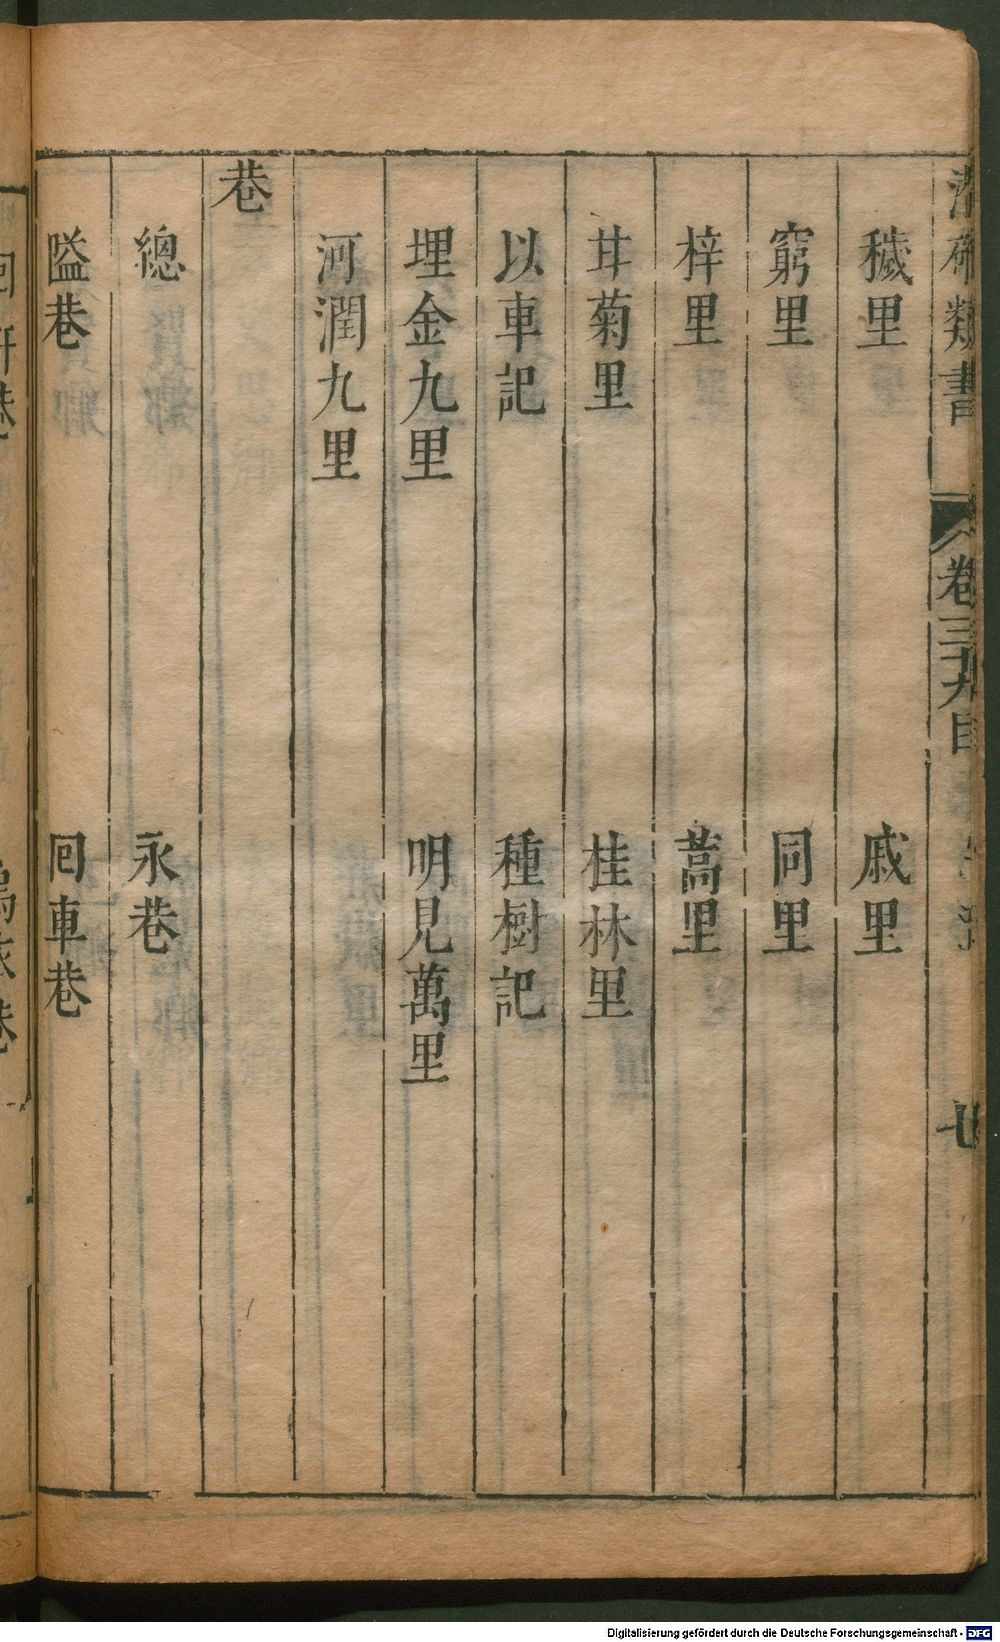 潛確類書
卷三十九目
穢里 戚里
窮里 同里
梓里 蒿里
甘菊里 桂林里
以車記 種樹記
埋金九里 明見萬里
河潤九里
巷
總 永巷
嗌巷 囘車巷
Digitalisierung gefördert durch die Deutsche Forschungsgemeinschaft - DFG